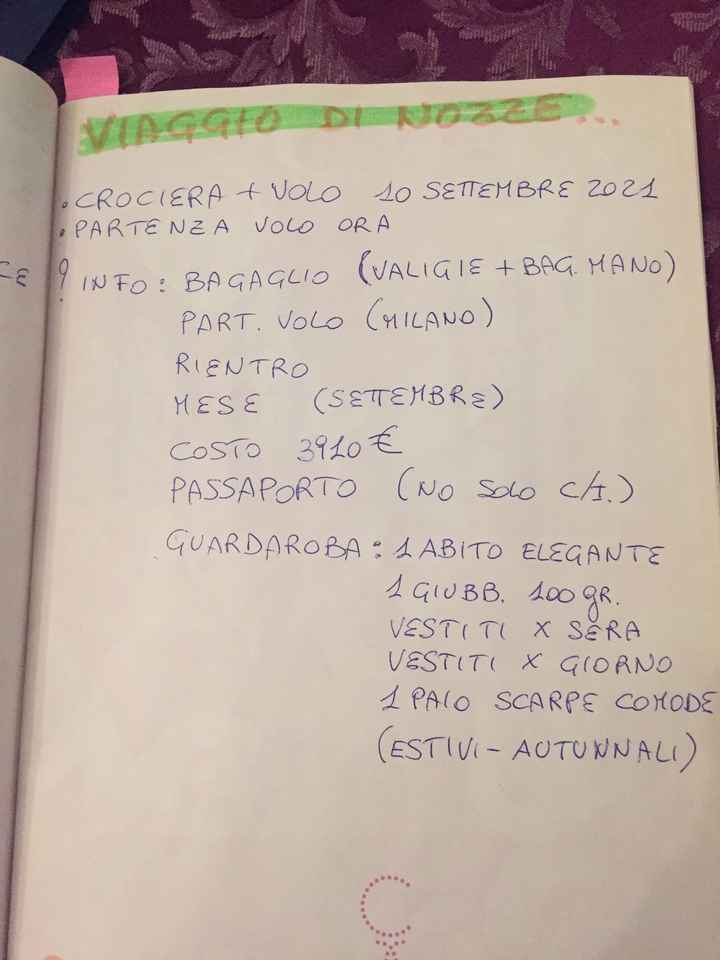 VIAGGIO DI NOZZE...
• CROCIERA + VOLO 10 SETTEMBRE 2021
• PARTENZA VOLO ORA
? INFO: BAGAGLIO (VALIGIE + BAG. MANO)
PART. VOLO (MILANO)
RIENTRO
MESE (SETTEMBRE)
COSTO 3910 €
PASSAPORTO (NO SOLO C/I.)
GUARDAROBA: 1 ABITO ELEGANTE
1 GIUBB. 100 gR.
VESTITI X SERA
VESTITI X GIORNO
1 PAIO SCARPE COMODE
(ESTIVI - AUTUNNALI)